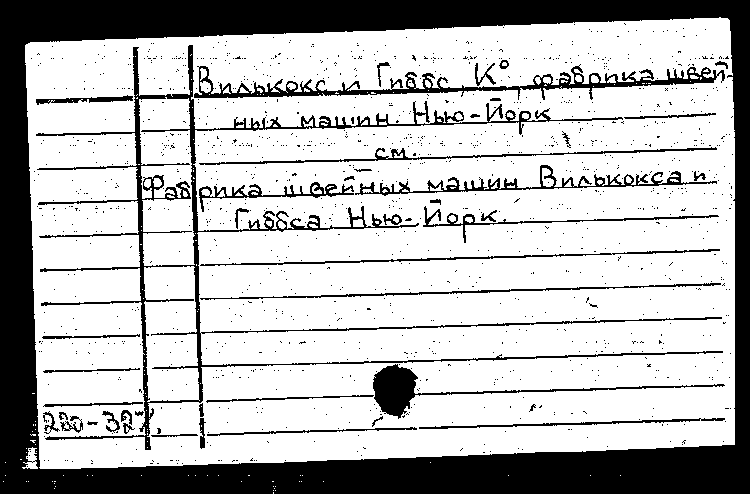 Вилькокс и Гиббс, К°, фабрика швей-
ных машин. Нью-Йорк
см.
Фабрика швейных машин Вилькокса и
Гиббса. Нью-Йорк.